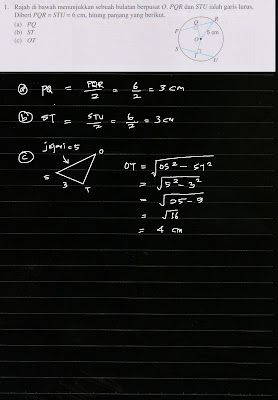 1. Rajah di bawah menunjukkan sebuah bulatan berpusat O. PQR dan STU ialah garis lurus.
Diberi PQR = STU = 6 cm, hitung panjang yang berikut.
(a) PQ
(b) ST
(c) OT
Q R
P 6 cm
O
S T
U
(a) PQ = PQR/2 = 6/2 = 3 cm
(b) ST = STU/2 = 6/2 = 3 cm
(c) jejari = 5 O
S 3 T
OT = √(OS² - ST²)
= √(5² - 3²)
= √(25 - 9)
= √16
= 4 cm